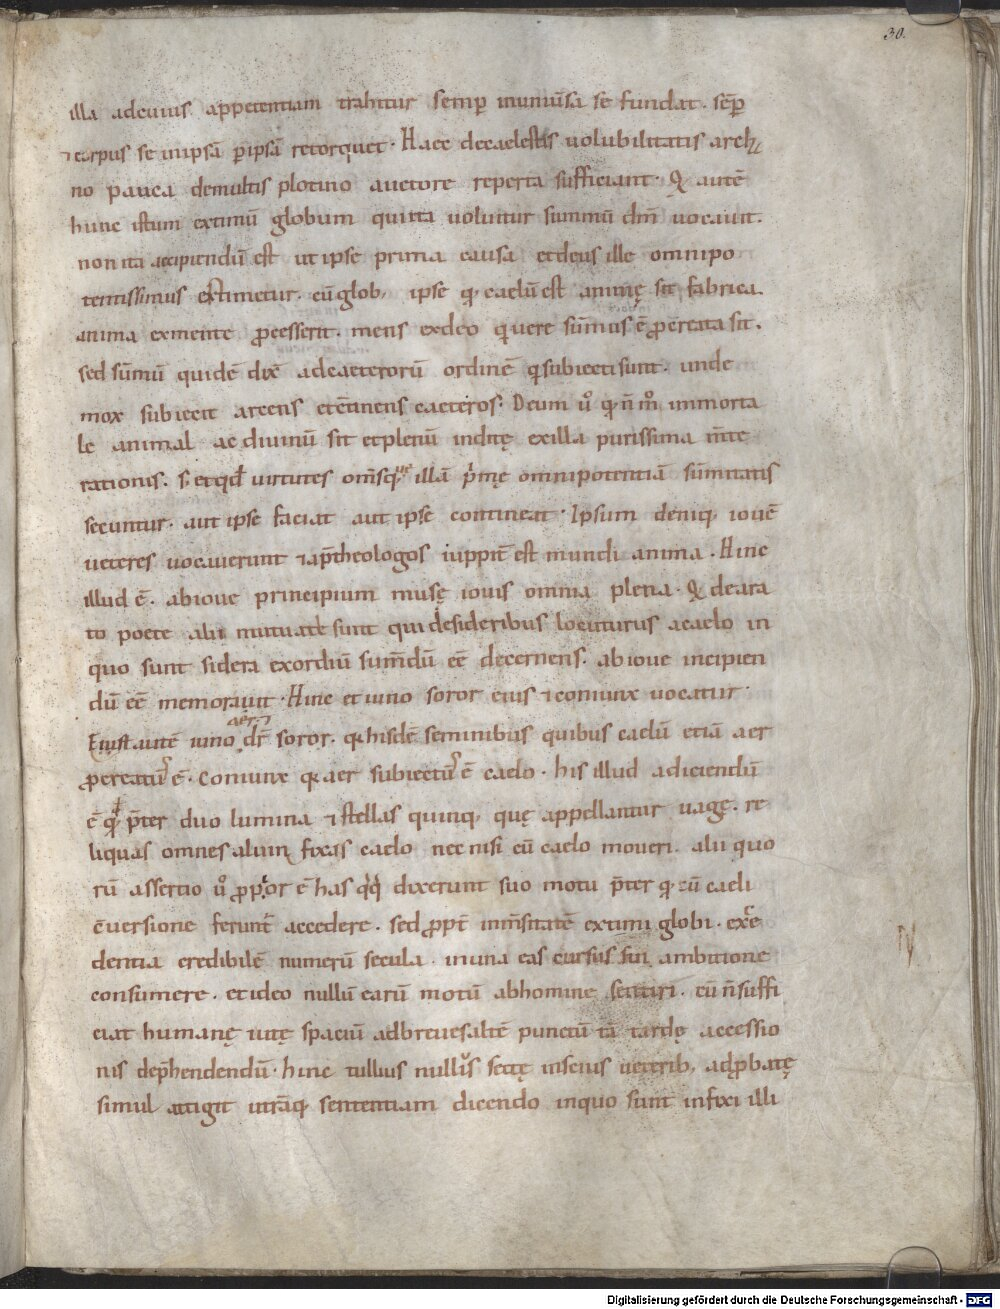 30.
illa adcuius appetentiam trahitur semꝑ inuniūsā se fundat. sēꝑ
⁊ corpus se inipsā ꝑipsā retorquet. Haec decaelestis uolubilitatis arch
no pauca demultis plotino auctore reperta sufficiant. Qđ autē
hunc istum extimū globum qui ita uoluitur summū dm̄ uocauit.
non ita accipiendū est ut ipse prima causa et deus ille omnipo
tentissimus estimetur. cū glob, ipse qđ caelū est animę sit fabrica.
anima exmente processerit. mens exdeo qui uere sūmus ē ꝓcreata sit.
sed sūmū quidē dix̄ adcaeterorū ordinē qi subiecti sunt. unde
mox subiecit arcens et c̄tinens caeteros. Deum ů qđ n̄ m̊ immorta
le animal ac diuinū sit et plenū inditę exilla purissima m̄te
rationis. s; et qđ virtutes om̄s quę illā prīmę omnipotentiā sūmitatis
secuntur. aut ipse faciat aut ipse contineat. Ipsum deniq, iouē
ueteres uocauerunt ⁊ ap̄ theologos iuppit̄ est mundi anima. Hinc
illud ē. abioue principium musę iouis omnia plena. Qđ deara
to poete alii mutuati sunt qui desideribus locuturus acaelo in
quo sunt sidera exordiū sumdū eē decernens. abioue incipien
dū eē memorauit. Hinc et iuno soror eius ⁊ coniunx uocatur.
aer
Eius autē iuno dr̄ soror. qa hisdē seminibus quibus caelū etiā aer
ꝓcreatur ē. Coniunx qa aer subiectus ē caelo. his illud adiciendū
ē qđ p̄ter duo lumina ⁊ stellas quinq, quę appellantur uagę. re
liquas omnes alii in fixas caelo nec nisi cū caelo moueri. alii quo
rū assertio ů ꝓpior ē has q̊q̊ dixerunt suo motu p̄ter qđ cū caeli
c̄uersione ferunt̄ accedere. sed ꝓpt̄ inm̄sitatē extimi globi. exce
dentia credibilē numerū secula. inuna eas cursus sui ambitione
consumere. et ideo nullū earū motū abhomine sentiri. cū n̄ suffi
ciat humanę uitę spaciū adbreue saltē punctū tā tardę accessio
nis dep̄hendendū. hinc tullius nullius sectę inscius ueterib, adꝓbatę
simul attigit utrāq, sententiam dicendo inquo sunt infixi illi
Digitalisierung gefördert durch die Deutsche Forschungsgemeinschaft - DFG